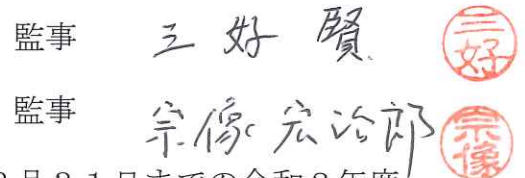 監事 三好 賢 三好
監事 宗像 宏治郎 宗像
3月31日までの令和3年度